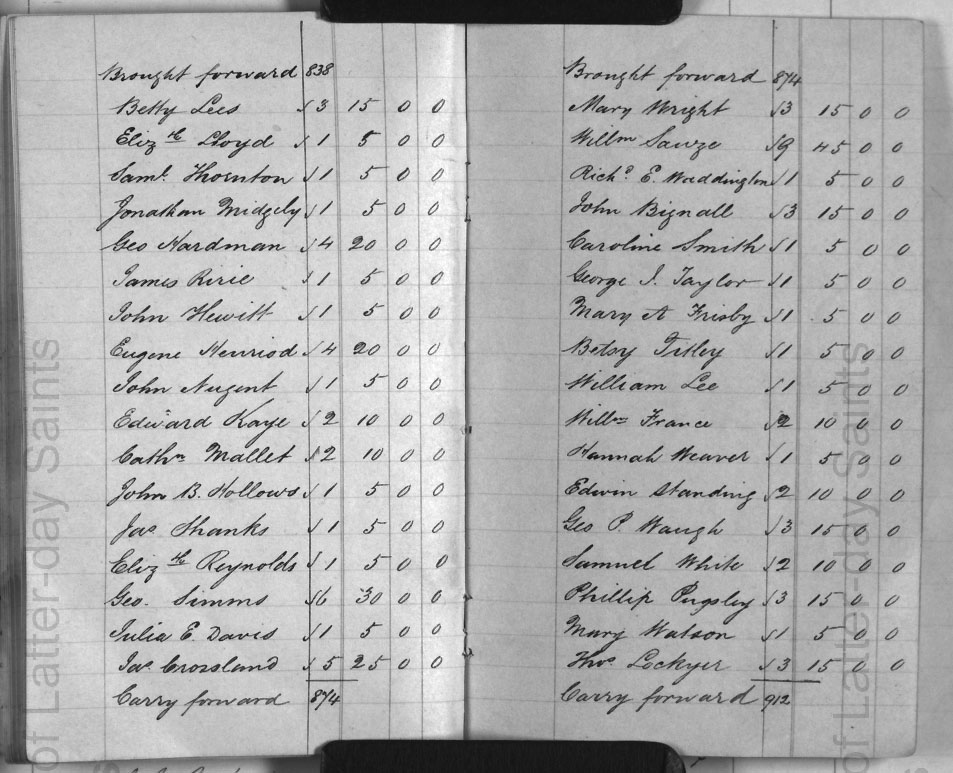 Brought forward 838
Betty Lees √ 3 15 0 0
Eliz th Lloyd √ 1 5 0 0
Saml. Thornton √ 1 5 0 0
Jonathan Midgely √ 1 5 0 0
Geo Hardman √ 4 20 0 0
James Ririe √ 1 5 0 0
John Hewitt √ 1 5 0 0
Eugene Henriod √ 4 20 0 0
John Nugent √ 1 5 0 0
Edward Kaye √ 2 10 0 0
Cathn Mallet √ 2 10 0 0
John B. Hollows √ 1 5 0 0
Jas Shanks √ 1 5 0 0
Eliz th Reynolds √ 1 5 0 0
Geo. Simms √ 6 30 0 0
Julia E. Davis √ 1 5 0 0
Jas Crossland √ 5 25 0 0
Carry forward 874
Brought forward 874
Mary Wright √ 3 15 0 0
Willm √ 9 45 0 0
Richd. E. Waddington √ 1 5 0 0
John Bignall √ 3 15 0 0
Caroline Smith √ 1 5 0 0
George J. Taylor √ 1 5 0 0
Mary A Frisby √ 1 5 0 0
Betsy Titley √ 1 5 0 0
William Lee √ 1 5 0 0
Willm France √ 2 10 0 0
Hannah Weaver √ 1 5 0 0
Edwin Standing √ 2 10 0 0
Geo P. Waugh √ 3 15 0 0
Samuel White √ 2 10 0 0
Phillip Pugsley √ 3 15 0 0
Mary Watson √ 1 5 0 0
Thos Lockyer √ 3 15 0 0
Carry forward 912
of Latter-day Saints
of Latter-day Saints